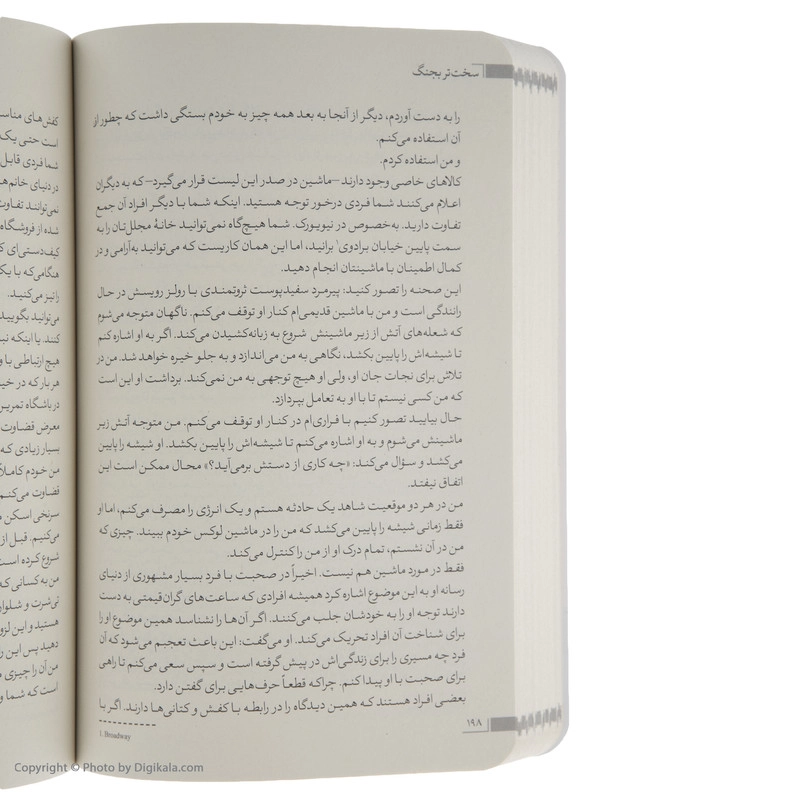 سخت‌تر بجنگ
را به دست آوردم، دیگر از آنجا به بعد همه چیز به خودم بستگی داشت که چطور از
آن استفاده می‌کنم.
و من استفاده کردم.
کالاهای خاصی وجود دارند –ماشین در صدر این لیست قرار می‌گیرد– که به دیگران
اعلام می‌کنند شما فردی درخور توجه هستید. اینکه شما با دیگر افراد آن جمع
تفاوت دارید. به‌خصوص در نیویورک. شما هیچ‌گاه نمی‌توانید خانهٔ مجلل‌تان را به
سمت پایین خیابان برادوی۱ برانید، اما این همان کاریست که می‌توانید به‌آرامی و در
کمال اطمینان با ماشینتان انجام دهید.
این صحنه را تصور کنید: پیرمرد سفیدپوست ثروتمندی با رولز رویسش در حال
رانندگی است و من با ماشین قدیمی‌ام کنار او توقف می‌کنم. ناگهان متوجه می‌شوم
که شعله‌های آتش از زیر ماشینش شروع به زبانه‌کشیدن می‌کند. اگر به او اشاره کنم
تا شیشه‌اش را پایین بکشد، نگاهی به من می‌اندازد و به جلو خیره خواهد شد. من در
تلاش برای نجات جان او، ولی او هیچ توجهی به من نمی‌کند. برداشت او این است
که من کسی نیستم تا با او به تعامل بپردازد.
حال بیایید تصور کنیم با فراری‌ام در کنار او توقف می‌کنم. من متوجه آتش زیر
ماشینش می‌شوم و به او اشاره می‌کنم تا شیشه‌اش را پایین بکشد. او شیشه را پایین
می‌کشد و سؤال می‌کند: «چه کاری از دستش برمی‌آید؟» محال ممکن است این
اتفاق نیفتد.
من در هر دو موقعیت شاهد یک حادثه هستم و یک انرژی را مصرف می‌کنم، اما او
فقط زمانی شیشه را پایین می‌کشد که من را در ماشین لوکس خودم ببیند. چیزی که
من در آن نشستم، تمام درک او از من را کنترل می‌کند.
فقط در مورد ماشین هم نیست. اخیراً در صحبت با فرد بسیار مشهوری از دنیای
رسانه او به این موضوع اشاره کرد همیشه افرادی که ساعت‌های گران‌قیمتی به دست
دارند توجه او را به خودشان جلب می‌کنند. اگر آن‌ها را نشناسد همین موضوع او را
برای شناخت آن افراد تحریک می‌کند. او می‌گفت: این باعث تعجبم می‌شود که آن
فرد چه مسیری را برای زندگی‌اش در پیش گرفته است و سپس سعی می‌کنم تا راهی
برای صحبت با او پیدا کنم. چراکه قطعاً حرف‌هایی برای گفتن دارد.
بعضی افراد هستند که همین دیدگاه را در رابطه با کفش و کتانی‌ها دارند. اگر با
1. Broadway
۱۹۸
کفش‌های
است حتی یک
شما فردی قابل
در دنیای خانم‌ها
نمی‌توانند تفاوت
شده از فروشگاه
کیف‌دستی‌ای
هنگامی‌که با یک
را تیز می‌کنید.
می‌توانید بگویید
کنند. یا اینکه
هیچ ارتباطی با
هر بار که در
در باشگاه تمرین
معرض قضاوت
بسیار زیادی که
من خودم کاملاً
قضاوت می‌کنم
سرنخی اسکن
می‌کنیم. قبل از
شروع کرده است
من به کسانی که
تی‌شرت و شلوار
هستید و این
دهید پس این
من آن را چیزی
است که شما و
Copyright © Photo by Digikala.com